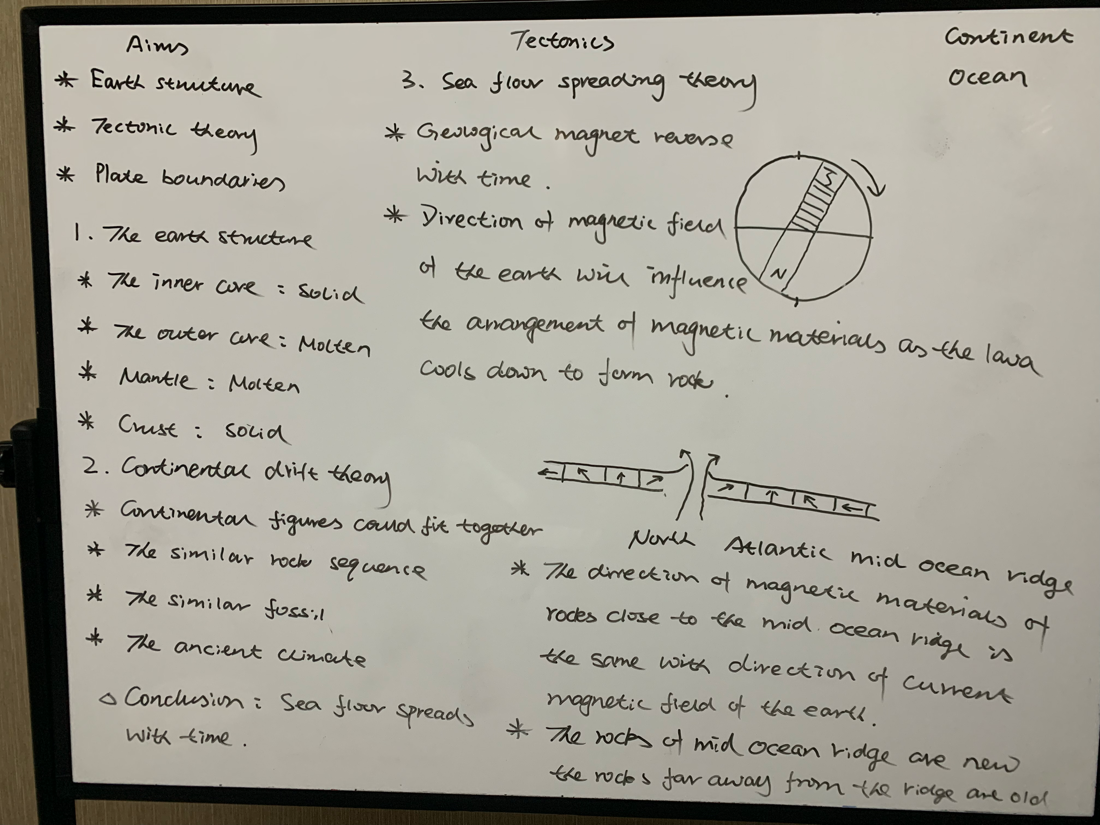 Aims
* Earth struture
* Tectonic theory
* Plate boundaries
1. The earth structure
* The inner core : solid
* The outer core : Molten
* Mantle : Molten
* Crust : solid
2. Continental drift theory
* Continental figures could fit together
* The similar rock sequence
* The similar fossil
* The ancient climate
△ Conclusion : Sea floor spreads
with time.
Tectonics
3. Sea floor spreading theory
* Geological magnet reverse
with time.
* Direction of magnetic field
of the earth will influence
the arrangement of magnetic materials as the lava
cools down to form rock.
S
N
North Atlantic mid ocean ridge
* The direction of magnetic materials of
rocks close to the mid ocean ridge is
the same with direction of current
magnetic field of the earth.
* The rocks of mid ocean ridge are new
the rocks far away from the ridge are old
Continent
Ocean